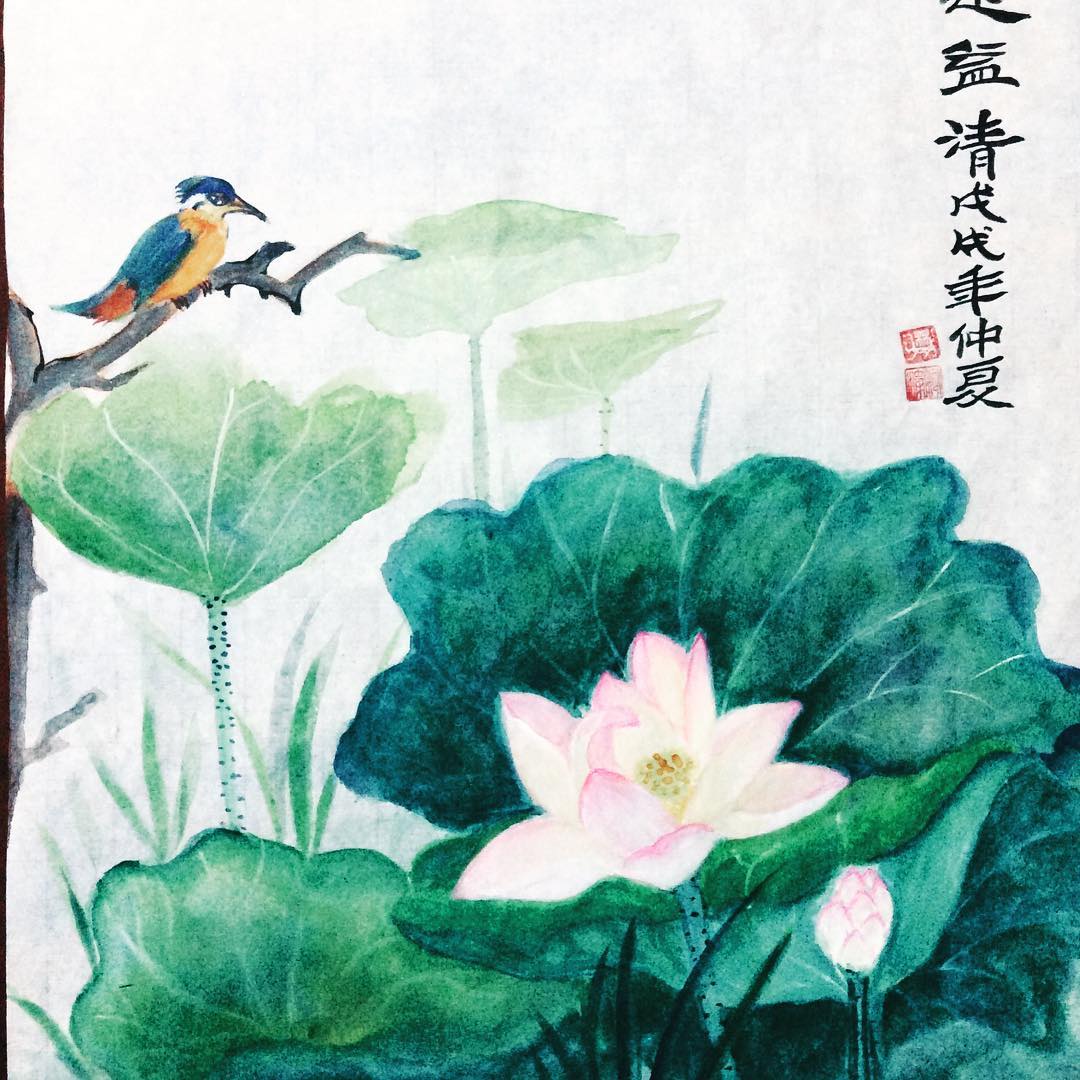 益清戊戌年仲夏